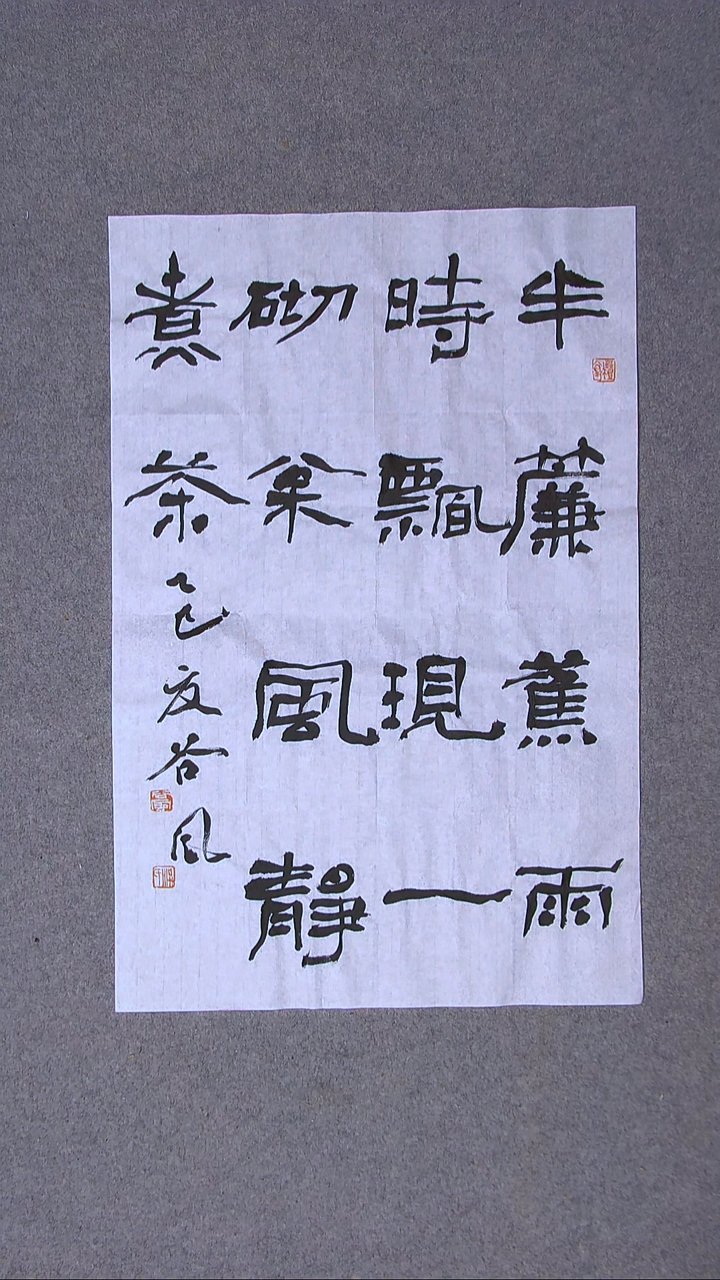 半簾蕉雨
時飄現一
砌風靜
煮茶 乙巳夏谷風